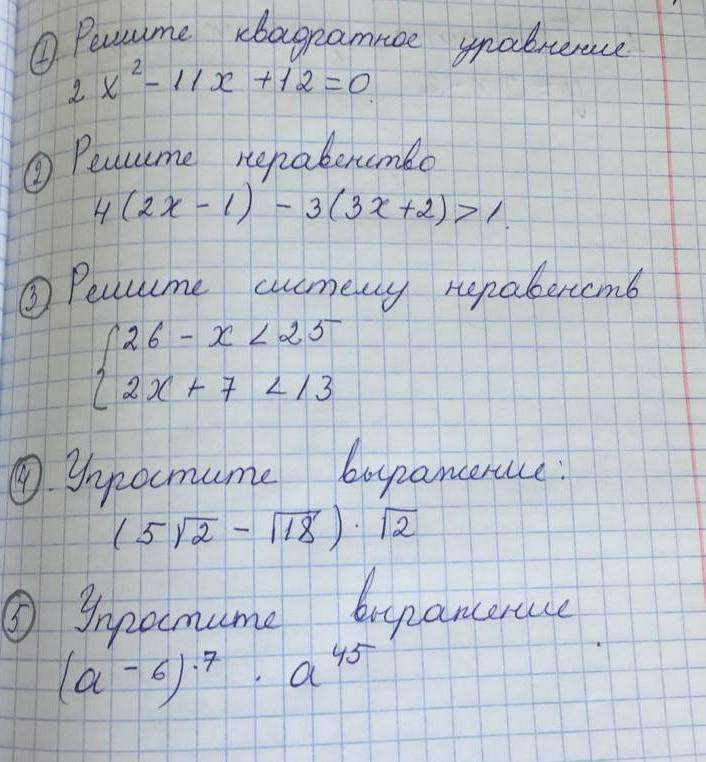 ① Решите квадратное уравнение
2x² - 11x + 12 = 0.
② Решите неравенство
4(2x - 1) - 3(3x + 2) > 1.
③ Решите систему неравенств
{26 - x < 25
{2x + 7 < 13
④. Упростите выражение:
(5√2 - √18) · √2
⑤ Упростите выражение
(a⁻⁶)·⁷ · a⁴⁵